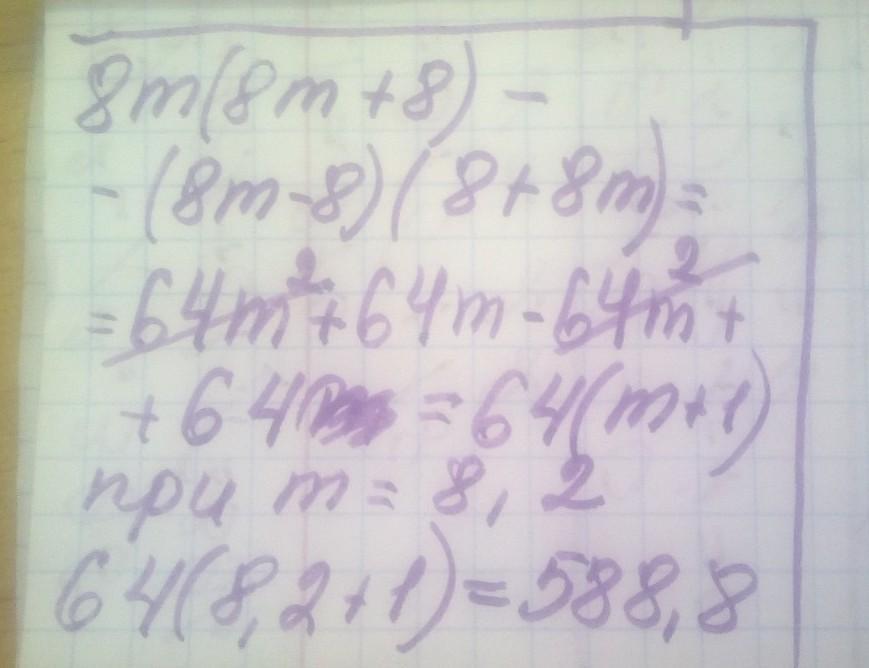 8m(8m+8)-
-(8m-8)(8+8m)=
=64m²+64m-64m²+
+64=64(m+1)
при m=8,2
64(8,2+1)=588,8